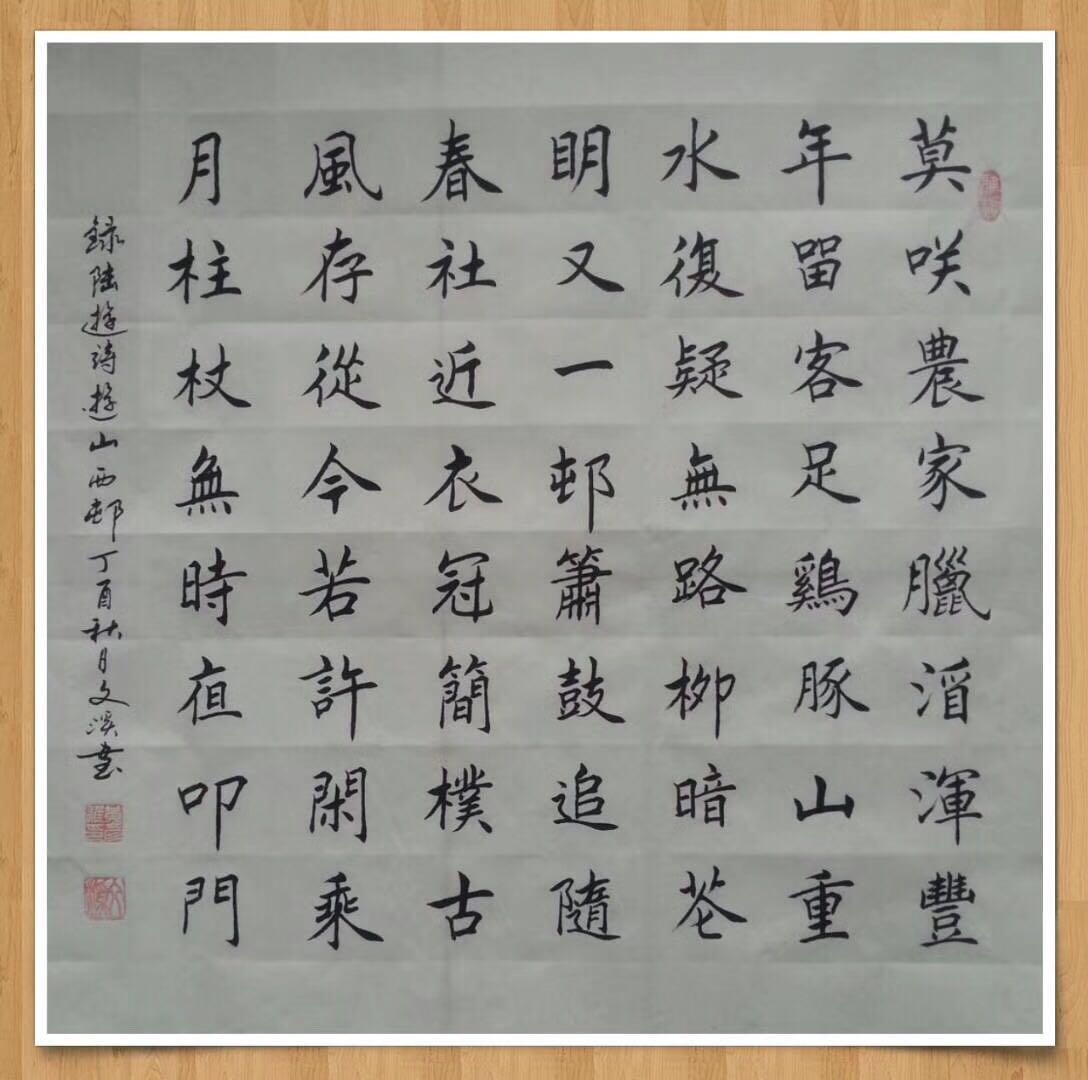 莫咲農家臘酒渾豐
年畱客足鷄豚山重
水復疑無路栁暗苍
眀又一邨簫鼓追隨
春社近衣冠簡樸古
風存從今若許閑乘
月柱杖無時夜叩門
録陸遊詩遊山西邨丁酉秋月文溪書